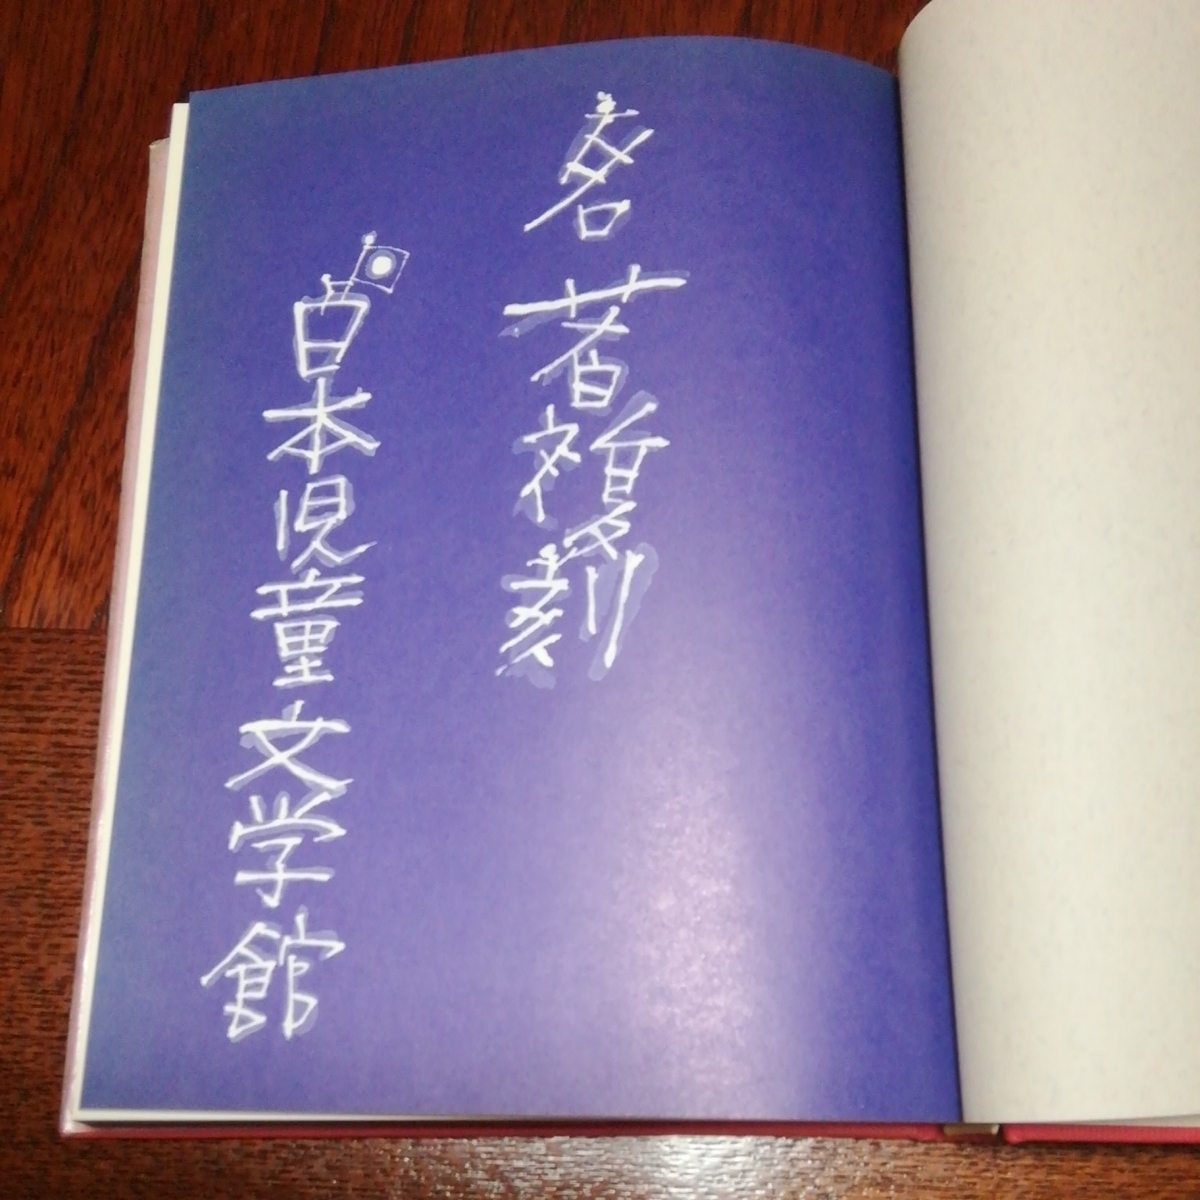 名著複刻
日本児童文学館